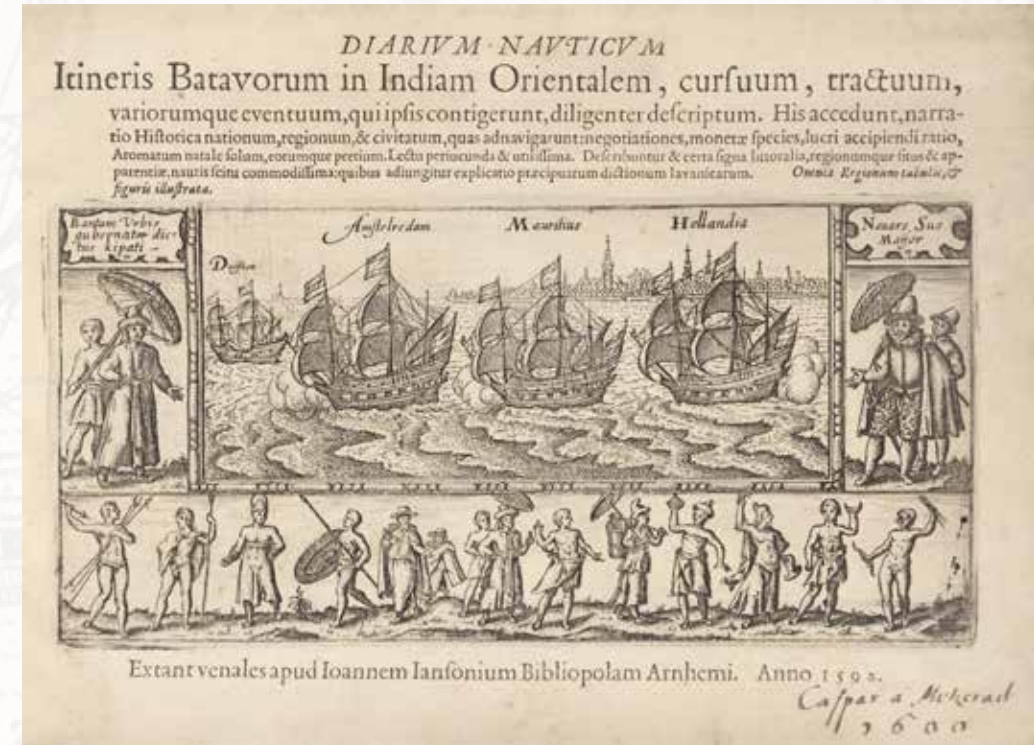 DIARIVM · NAVTICVM
Itineris Batavorum in Indiam Orientalem, curſuum, tractuum,
variorumque eventuum, qui ipſis contigerunt, diligenter deſcriptum. His accedunt, narra-
tio Hiſtorica nationum, regionum, & civitatum, quas adnavigarunt: negotiationes, monetæ ſpecies, lucri accipiendi ratio,
Aromatum natale ſolum, eorumque pretium. Lectu periucunda & utiliſſima. Deſcribuntur & certa ſigna littoralia, regionumque ſitus & ap-
parentiæ, nautis ſcitu commodiſſima: quibus adiungitur explicatio præcipuarum dictionum Iavanicarum. Omnia Regionum tabulis, &
figuris illuſtrata.
Bantam Vrbis
gubernator dic-
tus Kipati
Amſtelredam
Mauritius
Hollandia
Nauarc. Sus
Mayor
Extant venales apud Ioannem Ianſonium Bibliopolam Arnhemi. Anno 1598.
Caſpar a
1600